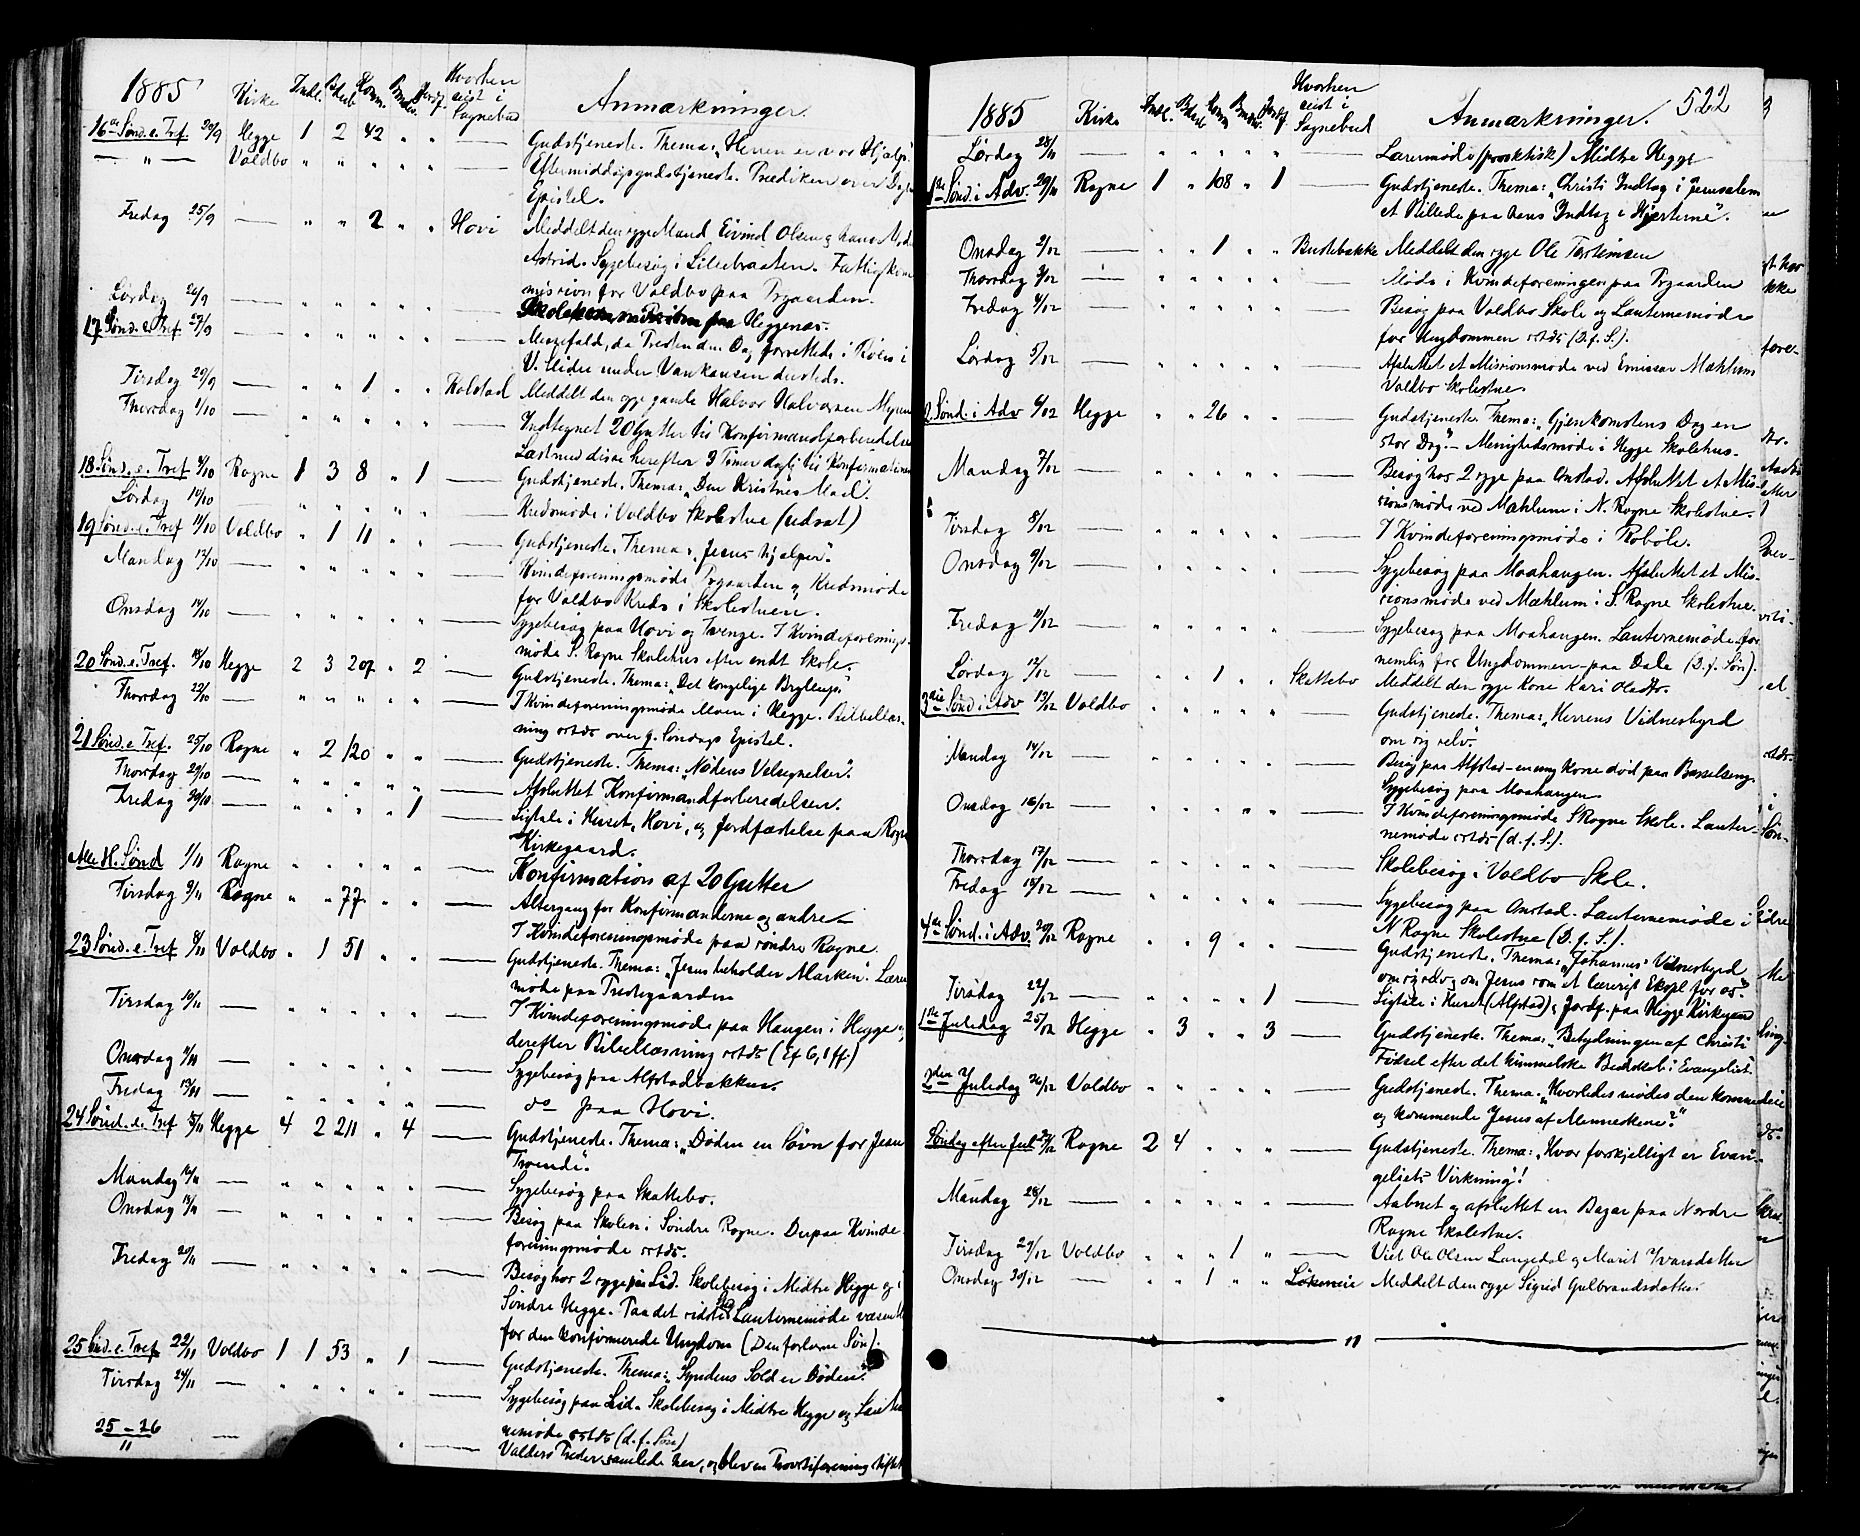 1885 Kirke Indl. Bdøb Komm. Brudev. Jordf. Hvorhen reist i Sognebud Anmærkninger.
16de Sønd. e. Tref 20/9 Hegge 1 2 42 " " — Gudstjeneste. Thema: „Herren er vor Hjælp".
— " — Voldbo " " " " " — Eftermiddagsgudstjeneste. Prædiken over Dagens
Epistel.
Fredag 25/9 — " " 2 " " Hovi Meddelt den syge Mand Eivind Olsen og hans Moder
Astrid. Sygebesøg i Lillebraaten. Fattigkom
mission for Voldbo paa Prgaarden.
Lørdag 26/9 — " " " " " — Heggenæs.
17 Sønd. e. Tref 27/9 — " " " " " — Messefald, da Presten den Dag forrettede i Røen i
V. Slidre under Vankansen dersteds.
Tirsdag 29/9 — " " 1 " " Kolstad Meddelt den syge gamle Halvor Halvorsen
Thorsdag 1/10 " " " " " — Indtegnet 20 Gutter til Konfirmandforberedelse
Læst med disse herefter 3 Timer dagl. til Konfirmationen
18 Sønd. e. Tref 4/10 Rogne 1 3 8 " 1 — Gudstjeneste. Thema: „Den Kristnes Maal".
Lørdag 10/10 " " " " " — Kredsmøde i Voldbo Skolestue (udsat)
19 Sønd. e. Tref 11/10 Voldbo " 1 11 " " Gudstjeneste. Thema: „Jesus hjælper".
Mandag 12/10 — " " " " " — Kvindeforeningsmøde Prgaarden og Kredsmøde
for Voldbo Kreds i Skolestuen.
Onsdag 14/10 — " " " " " — Sygebesøg paa Hovi og Tvenge. I Kvindeforenings-
møde S. Rogne Skolehus efter endt Skole.
20 Sønd. e. Tref. 18/10 Hegge 2 3 207 " 2 — Gudstjeneste. Thema: „Det kongelige Bryllup"
Thorsdag 22/10 — " " " " " — I Kvindeforeningsmøde Moen i Hegge. Bibellæs-
ning sstds over f. Søndags Epistel.
21 Sønd. e. Tref. 25/10 Rogne " 2 120 " " — Gudstjeneste. Thema: „Nødens Velsignelser".
Thorsdag 29/10 — " " " " " — Afsluttet Konfirmandforberedelsen.
Fredag 30/10 — " " " " 1 — Ligtale i Huset, Hovi, og Jordfæstelse paa Rogne
Kirkegaard.
Alle H. Sønd 1/11 Rogne " " " " " — Konfirmation af 20 Gutter
Tirsdag 3/11 Rogne " " 77 " " — Altergang for Konfirmanderne og andre —
I Kvindeforeningsmøde paa søndre Rogne.
23 Sønd. e. Tref 8/11 Voldbo " 1 51 " " — Gudstjeneste. Thema: „Jesus beholder Marken". Lærer
møde paa Prestegaarden
Tirsdag 10/11 — " " " " " — I Kvindeforeningsmøde paa Haugen i Hegge og
derefter Bibellæsning sstds (Ef 6, 1 ff.)
Onsdag 11/11 — " " " " " — Sygebesøg paa Alfstadbakken.
Fredag 13/11 — " " " " " — do paa Hovi.
24 Sønd. e. Tref 15/11 Hegge 4 2 211 " 4 — Gudstjeneste. Thema: „Døden en Søvn for Jesu
Troende".
Mandag 16/11 — " " " " " — Sygebesøg paa Skattebo.
Onsdag 18/11 — " " " " " — Besøg paa Skolen i Søndre Rogne. Derpaa Kvinde-
foreningsmøde sstds.
Fredag 20/11 " " " " " — Besøg hos 2 syge paa Lid. Skolebesøg i Midtre Hegge og i
Søndre Hegge. Paa det sidste Sted Lanternemøde væsentl.
for den konfirmerede Ungdom (Den forlorne Søn).
25 Sønd. e. Tref 22/11 Voldbo 1 1 53 " 1 — Gudstjeneste. Thema: „Syndens Sold er Døden".
Tirsdag 24/11 — " " " " " — Sygebesøg paa Lid. Skolebesøg i Midtre Hegge og Lanter
nemøde sstds (d. f. Søn)
25–26/11 — " — Valders Præster samlede her, og blev en Provstiforening stiftet
522
1885 Kirke Indl. Bdøb Komm Brudev. Jordf Hvorhen reist i Sognebud Anmærkninger.
Lørdag 28/11 — " " " " " — Lærermøde (praktisk) Midtre Hegge
1ste Sønd. i Adv. 29/11 Rogne 1 " 108 " 1 — Gudstjeneste. Thema: „Christi Indtog i Jerusalem
et Billede paa hans Indtog i Hjerterne".
Onsdag 2/12 — " " 1 " " Budebakke Meddelt den syge Ole Torstensen
Thorsdag 3/12 — " " " " " Møde i Kvindeforeningen paa Prgaarden
Fredag 4/12 — " " " " " Besøg paa Voldbo Skole og Lanternemøde
for Ungdommen sstds (D. f. S.).
Lørdag 5/12 " " " " " Afsluttet et Missionsmøde ved Emissær Mæhlum
Voldbo Skolestue
2. Sønd. i Adv 6/12 Hegge " " 26 " " Gudstjeneste. Thema: „Gjenkomstens Dag en
stor Dag". – Menighedsmøde i Hegge Skolehus.
Mandag 7/12 — " " " " " Besøg hos 2 syge paa Onstad. Afsluttet et Mis-
sionsmøde ved Mæhlum i N. Rogne Skolestue.
Tirsdag 8/12 " " " " " I Kvindeforeningsmøde i Robøle.
Onsdag 9/12 — " " " " " Sygebesøg paa Moahaugen. Afsluttet et Mis-
sionsmøde ved Mæhlum i S. Rogne Skolestue.
Fredag 11/12 — " " " " " Sygebesøg paa Moahaugen. Lanternemøde – for
nemlig for Ungdommen – paa Dale (D. f. Søn).
Lørdag 12/12 — " " 1 " " Skattebo Meddelt den syge Kone Kari Olsdtr.
3die Sønd i Adv 13/12 Voldbo " " " " " Gudstjeneste. Thema: „Herrens Vidnesbyrd
om sig selv".
Mandag 14/12 — " " " " " Besøg paa Alfstad – en ung Kone død paa Barselseng.
Sygebesøg paa Moahaugen
Onsdag 16/12 — " " " " " I Kvindeforeningsmøde S Rogne Skole. Lanter-
nemøde sstds (d. f. S.).
Thorsdag 17/12 — " " " " " — Skolebesøg i Voldbo Skole.
Fredag 18/12 — " " " " " — Sygebesøg paa Onstad. Lanternemøde i
N Rogne Skolestue (D. f. S.).
4de Sønd. i Adv. 20/12 Rogne " " 9 " " — Gudstjeneste. Thema: „Johannes' Vidnesbyrd
om sig selv og om Jesus som et lærerigt Expl for os".
Tirsdag 22/12 — " " " " 1 — Ligtale i Huset (Alfstad) og Jordf. paa Hegge Kirkegaard
1ste Juledag 25/12 Hegge " 3 " " 3 — Gudstjeneste. Thema: „Betydningen af Christi
Fødsel efter det himmelske Budskab i Evangeliet".
2den Juledag 26/12 Voldbo " " " " " — Gudstjeneste. Thema: „Hvorledes mødes den kommende
og kommende Jesus af Menneskene?"
Søndag efter Jul 27/12 Rogne 2 4 " " " — Gudstjeneste. Thema: „Hvor forskjelligt er Evan-
geliets Virkning"!
Mandag 28/12 — " " " " " — Aabnet og afsluttet en Bazar paa Nordre
Rogne Skolestue.
Tirsdag 29/12 Voldbo " " " 1 " — Viet Ole Olsen Langedal og Marit Ivarsdatter
Onsdag 30/12 — " " 1 " " Meddelt den syge Sigrid Gulbrandsdatter
— " —